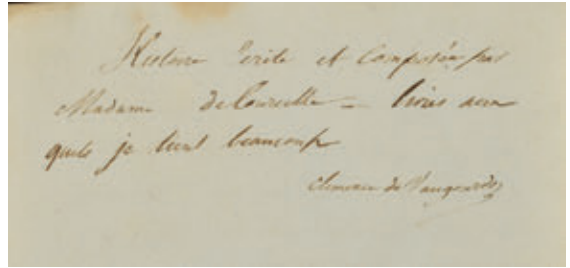 Histoire écrite et Composée par
Madame de Courcelle = livres aux
quels je tient beaucoup
Clemence de